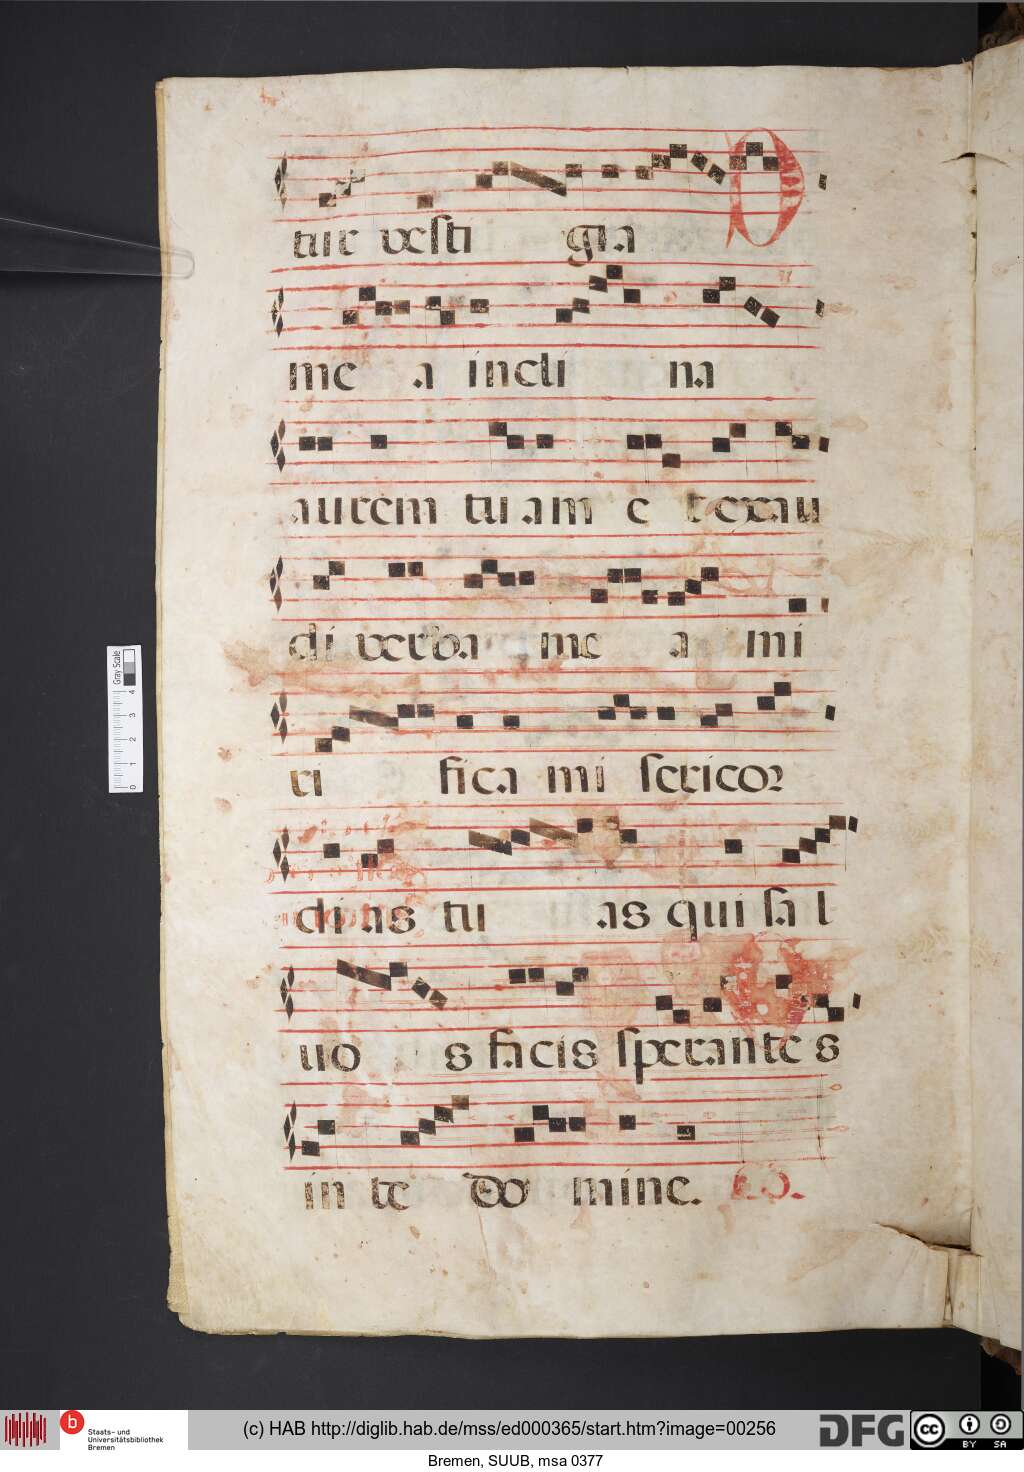 tur vesti gia
me a incli na
aurem tu am e t exau
di verba me a mi
ri fica mi sericor
di as tu as qui sa l
uo s facis sperante s
in te do mine.
Gray Scale
0 1 2 3 4
b Staats- und Universitätsbibliothek Bremen
(c) HAB http://diglib.hab.de/mss/ed000365/start.htm?image=00256
DFG
cc BY SA
Bremen, SUUB, msa 0377